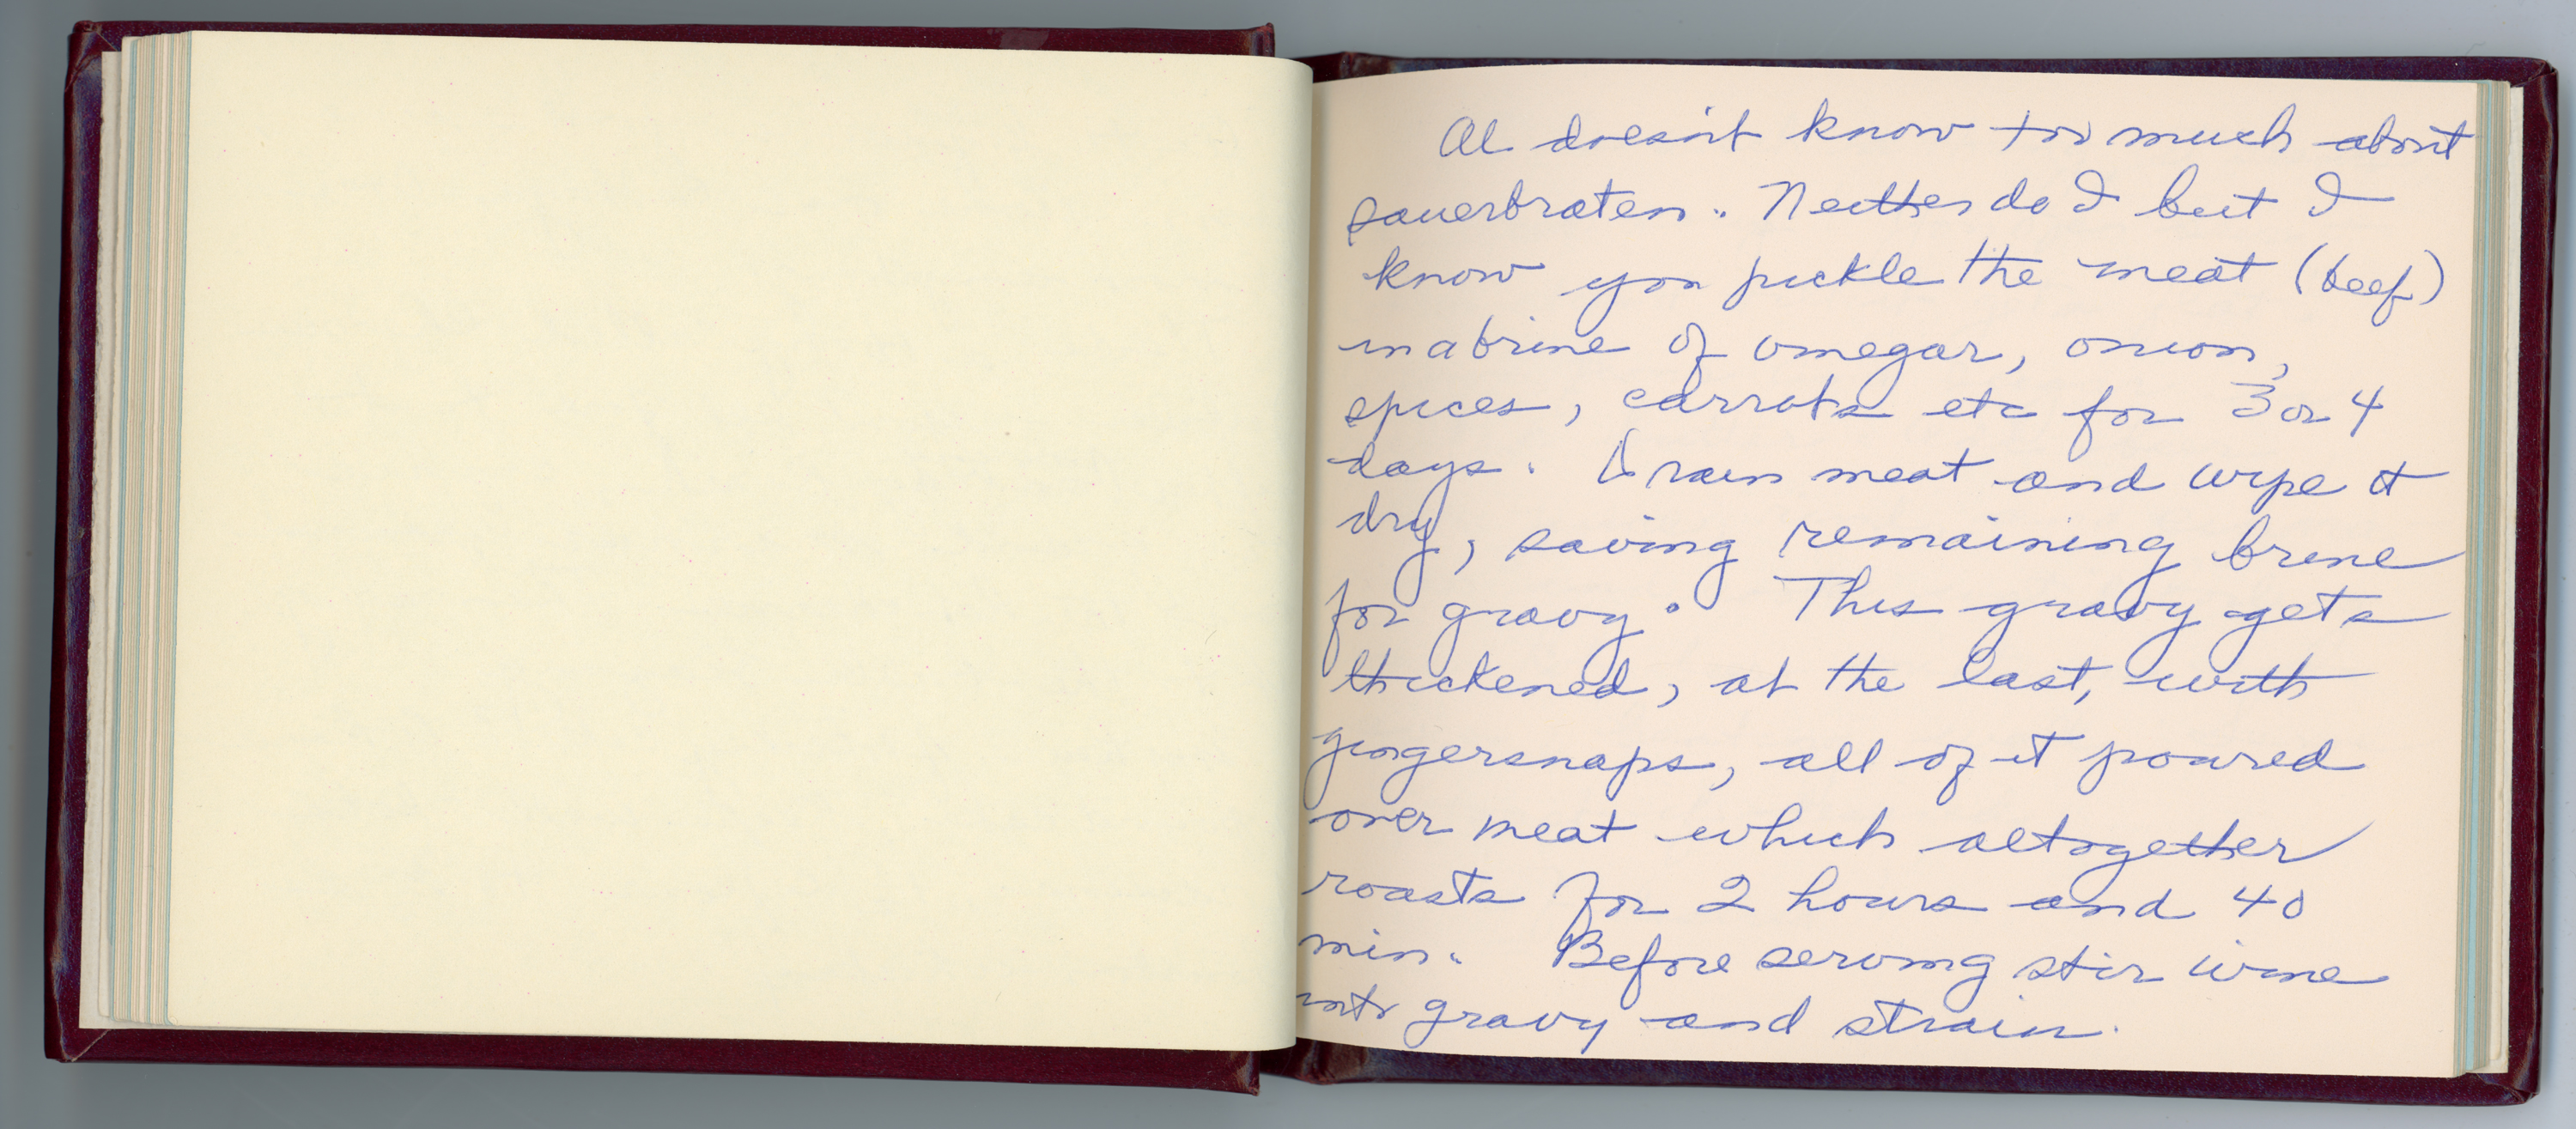 Al doesn't know too much about
sauerbraten. Neither do I but I
know you pickle the meat (beef)
in a brine of vinegar, onion,
spices, carrots etc for 3 or 4
days. Drain meat and wipe it
dry, saving remaining brine
for gravy. This gravy gets
thickened, at the last, with
gingersnaps, all of it poured
over meat which altogether
roasts for 2 hours and 40
min. Before serving stir wine
into gravy and strain.